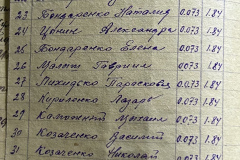 23 Бондаренко Наталия 0.073 1.84
24 Цонин Александра 0.073 1.84
25 Бондаренко Елена 0.073 1.84
26 Гаврил 0.073 1.84
27 Парасковия 0.073 1.84
28 Кириленко Лазарь 0.073 1.84
0.073 1.84
Козаченко Василий 073 1.84
Козаченко Николай 0.073 1.84